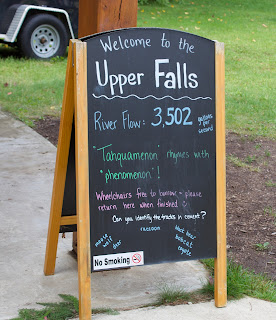 Welcome to the
Upper Falls
River Flow: 3,502 gallons per second
"Tahquamenon" rhymes with
"phenomenon"!
Wheelchairs free to borrow - please
return here when finished
Can you identify the tracks in cement?
raccoon
moose
wolf
deer
black bear
bobcat
coyote
No Smoking